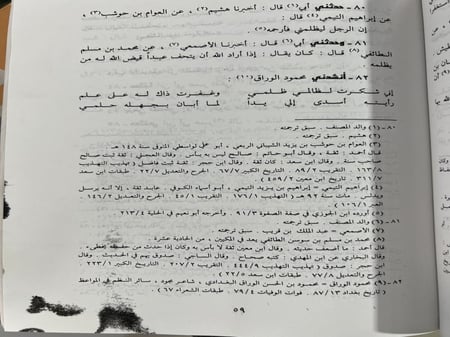 ٨٠ـ حدثني أبي(١) قال : أخبرنا هشيم(٢) ، عن العوام بن حوشب(٣) ،
عن إبراهيم التيمي(٤) قال :
إن الرجل ليظلمني فأرحمه(٥) .
٨١ـ وحدثني أبي(٦) قال : أخبرنا الأصمعي(٧) ، عن محمد بن مسلم
الطائفي(٨) قال : كان يقال : إذا أراد الله أن يتحف عبداً قيض الله له من
يظلمه .
٨٢ـ أنشدني محمود الوراق(٩) :
إني شكرت لظالمي ظلمي وغفرت ذاك له على علم
رأيته أسدى إلي يداً لما أبان بجهله حلمي
٨٠ـ (١) والد المصنف . سبق ترجمته
(٢) هشيم . سبق ترجمته .
(٣) العوام بن حوشب بن يزيد الشيباني الربعي ، أبو عيسى الواسطي المتوفى سنة ١٤٨ هـ
قال أحمد : ثقة . وقال أبو حاتم : صالح ليس به بأس . وقال العجلي : ثقة ثبت صالح
صاحب سنة . وقال ابن سعد : كان ثقة . وقال ابن حجر : ثقة ثبت فاضل ( تهذيب التهذيب
١٦٣/٨ . التقريب ٨٩/٢ . التاريخ الكبير ٦٧/٧ . الجرح والتعديل ٢٢/٧ . طبقات ابن سعد
٣١١/٧ . تاريخ ابن معين ٤٥٩/٢ )
(٤) إبراهيم التيمي = إبراهيم بن يزيد التيمي ، أبو أسماء الكوفي . عابد ثقة ، إلا أنه يرسل
ويدلس مات سنة ٩٢ هـ ( التهذيب ١٧٦/١ . التقريب ٤٥/١ . الجرح والتعديل ١٤٦/٢ .
العبر ١٠٦/١ )
(٥) أورده ابن الجوزي في صفة الصفوة ٩١/٣ . وأخرجه أبو نعيم في الحلية ٢١٣/٤
٨١ـ (٦) والد المصنف . سبق ترجمته .
(٧) الأصمعي = عبد الملك بن قريب . سبق ترجمته .
(٨) محمد بن مسلم بن سوسن الطائفي يعد في المكيين ، من الحادية عشرة .
قال أحمد : ما أضعف حديثه . وقال ابن معين ثقة لا بأس به وكان إذا حدث من حفظه يخطئ،
وقال البخاري عن ابن المهدي : كتبه صحاح . وقال الساجي : صدوق يهم في الحديث . وقال
ابن حجر : صدوق ( تهذيب التهذيب ٤٤٤/٩ . التقريب ٢٠٧/٢ . التاريخ الكبير ٢٢٣/١ .
الجرح والتعديل ٧٧/٨ . طبقات ابن سعد ٥٢٢/٥ )
٨٢ـ (٩) محمود الوراق = محمود بن الحسن الوراق البغدادي ، شاعر مجود ، سائر النظم في المواعظ
( تاريخ بغداد ٨٧/١٣ . فوات الوفيات ٧٩/٤ . طبقات الشعراء ٦٧ )
٥٩